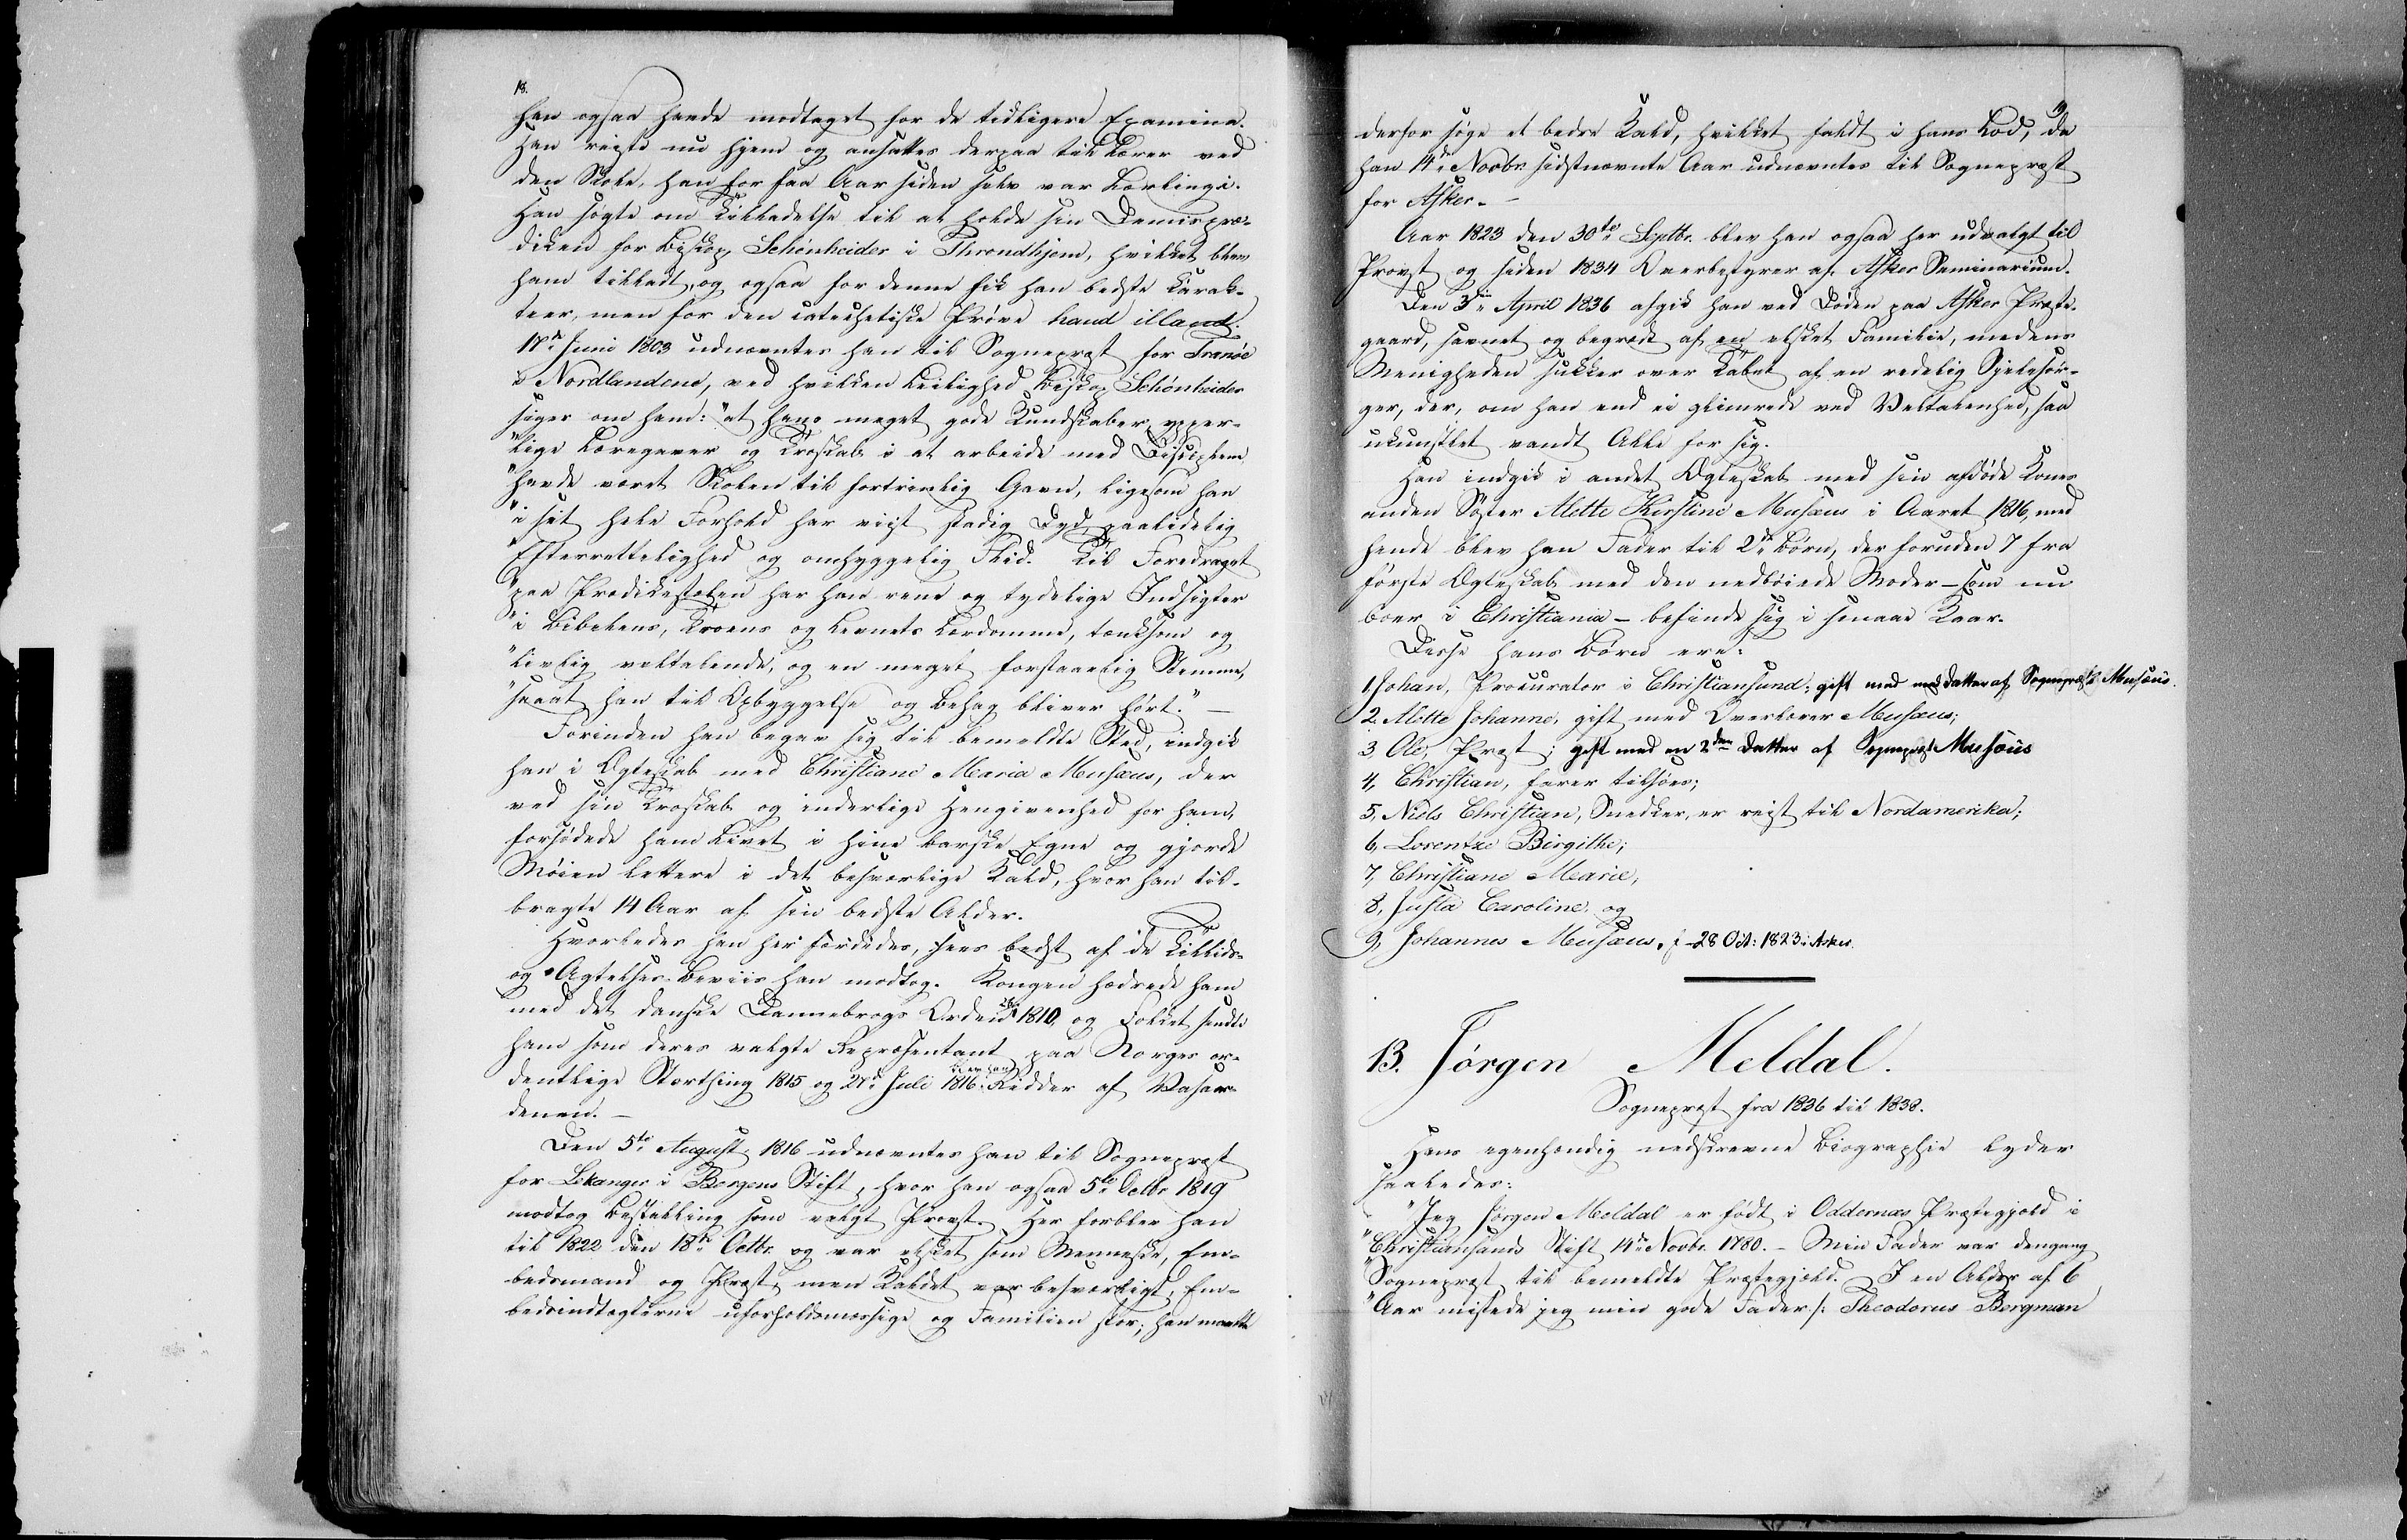 18.
han ogsaa havde modtaget for de tidligere Examina.
Han reiste nu hjem og ansattes derpaa til Lærer ved
den Skole, han for faa Aar siden selv var Lærling i.
Han søgte om Tilladelse til at holde sin Demispræ-
diken for Biskop Schönheider i Throndhjem, hvilket blev
ham tilladt, og ogsaa for denne fik han bedste Karak-
teer, men for den catechetiske Prøve haud illaud.
17de Juni 1803 udnævntes han til Sognepræst for Tranöe
i Nordlandene, ved hvilken Leilighed Biskop Schönheider
siger om ham: "at hans meget gode Kundskaber, ypper-
"lige Læregaver og Troskab i at arbeide med Disciplene
"havde været Skolen til fortrinlig Gavn, ligesom han
"i sit hele Forhold har viist stadig Dyd, paalidelig
"Efterrettelighed og omhyggelig Flid. Til Foredraget
"paa Prædikestolen har han rene og tydelige Indsigter
"i Bibelens, Troens og Levnets Lærdomme, tænksom og
"livlig veltalende, og en meget forstaaelig Stemme,
"saaat han til Opbyggelse og Behag bliver hørt." –
Forinden han begav sig til bemeldte Sted, indgik
han i Ægteskab med Christiane Maria Musæus, der
ved sin Troskab og inderlige Hengivenhed for ham,
forsødede ham Livet i hine barske Egne og gjorde
Møien lettere i det besværlige Kald, hvor han til-
bragte 14 Aar af sin bedste Alder.
Hvorledes han her færdedes, sees bedst af de Tillids-
og Agtelses-Beviis han modtog. Kongen hædrede ham
med det danske Dannebrogs Orden 28/1 1810, og Folket sendte
ham som deres valgte Repræsentant paa Norges or-
dentlige Storthing 1815 og 21de Juli 1816 blev han Ridder af Vasaor-
denen. –
Den 5te August 1816 udnævntes han til Sognepræst
for Lekanger i Bergens Stift, hvor han ogsaa 5te Octbr. 1819
modtog Bestalling som valgt Provst. Her forblev han
til 1822 den 18de Octbr. og var elsket som Menneske, Em-
bedsmand og Præst; men Kaldet var besværligt, Em-
bedsindtægterne uforholdsmæssige og Familien stor; han maatte
19
derfor søge et bedre Kald, hvilket faldt i hans Lod, da
han 14de Novbr. sidstnævnte Aar udnævntes til Sognepræst
for Asker. –
Aar 1823 den 30te Septbr. blev han ogsaa her udvalgt til
Provst og siden 1834 Overbestyrer af Asker Seminarium.
Den 3die April 1836 afgik han ved Døden paa Asker Præste-
gaard, savnet og begrædt af en elsket Familie, medens
Menigheden sukker over Tabet af en redelig Sjelesør-
ger, der, om han end ei glimrede ved Veltalenhed, saa
ukunstlet vandt Alle for sig.
Han indgik i andet Ægteskab med sin afdøde Kones
anden Søster Mette Kirstine Musæus i Aaret 1816, med
hende blev han Fader til 2de Børn, der foruden 7 fra
første Ægteskab med den nedbøiede Moder – som nu
boer i Christiania – befinde sig i smaae Kaar.
Disse hans Børn ere:
1, Johan, Procurator i Christiansund; gift med med Datter af Sognepræst Musæus.
2, Mette Johanne, gift med Overlærer Musæus;
3, Ole, Præst; gift med en 2den Datter af Sognepræst Musæus
4, Christian, farer tilsøes;
5, Niels Christian, Snedker, er reist til Nordamerika;
6, Lorentze Birgithe;
7, Christiane Marie,
8, Justa Caroline, og
9, Johannes Musæus, f. 28 Oct: 1823 i Asker.
13. Jörgen Meldal.
Sognepræst fra 1836 til 1838.
Hans egenhændig nedskrevne Biographie lyder
saaledes:
"Jeg Jörgen Meldal er født i Oddernæs Præstegjeld i
"Christiansands Stift 14de Novbr. 1780. – Min Fader var dengang
"Sognepræst til bemeldte Præstegjeld. I en Alder af 6
"Aar mistede jeg min gode Fader /: Theodorus Bergman